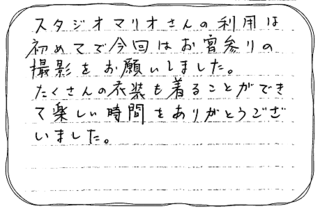 スタジオマリオさんの利用は
初めてで今回はお宮参りの
撮影をお願いしました。
たくさんの衣装を着ることができ
て楽しい時間をありがとうござ
いました。